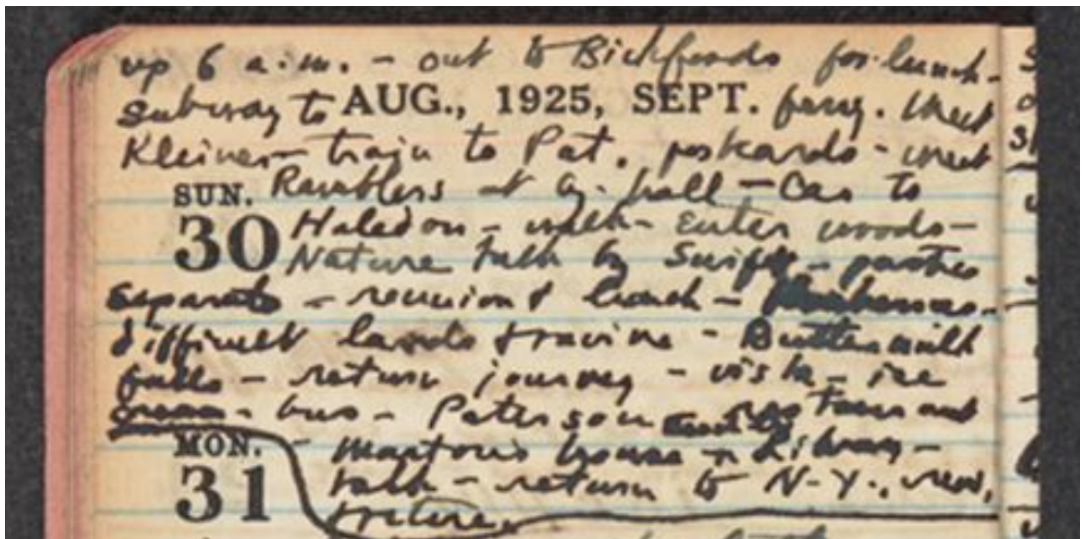 up 6 a.m. - out to Bickfords for lunch -
subway to AUG., 1925, SEPT. ferry. Meet
Kleiner - train to Pat. postcards - meet
SUN. Ramblers at C. hall - Car to
30 Haledon - walk - enter woods -
Nature talk by Swift - parties
separate - reunion & lunch -
difficult lands & ravine - Buttermilk
falls - return journey - vista - ice
cream - bus - Paterson restaurant
MON. - Morton's house - Library -
31 talk - return to N-Y., read,
retire.